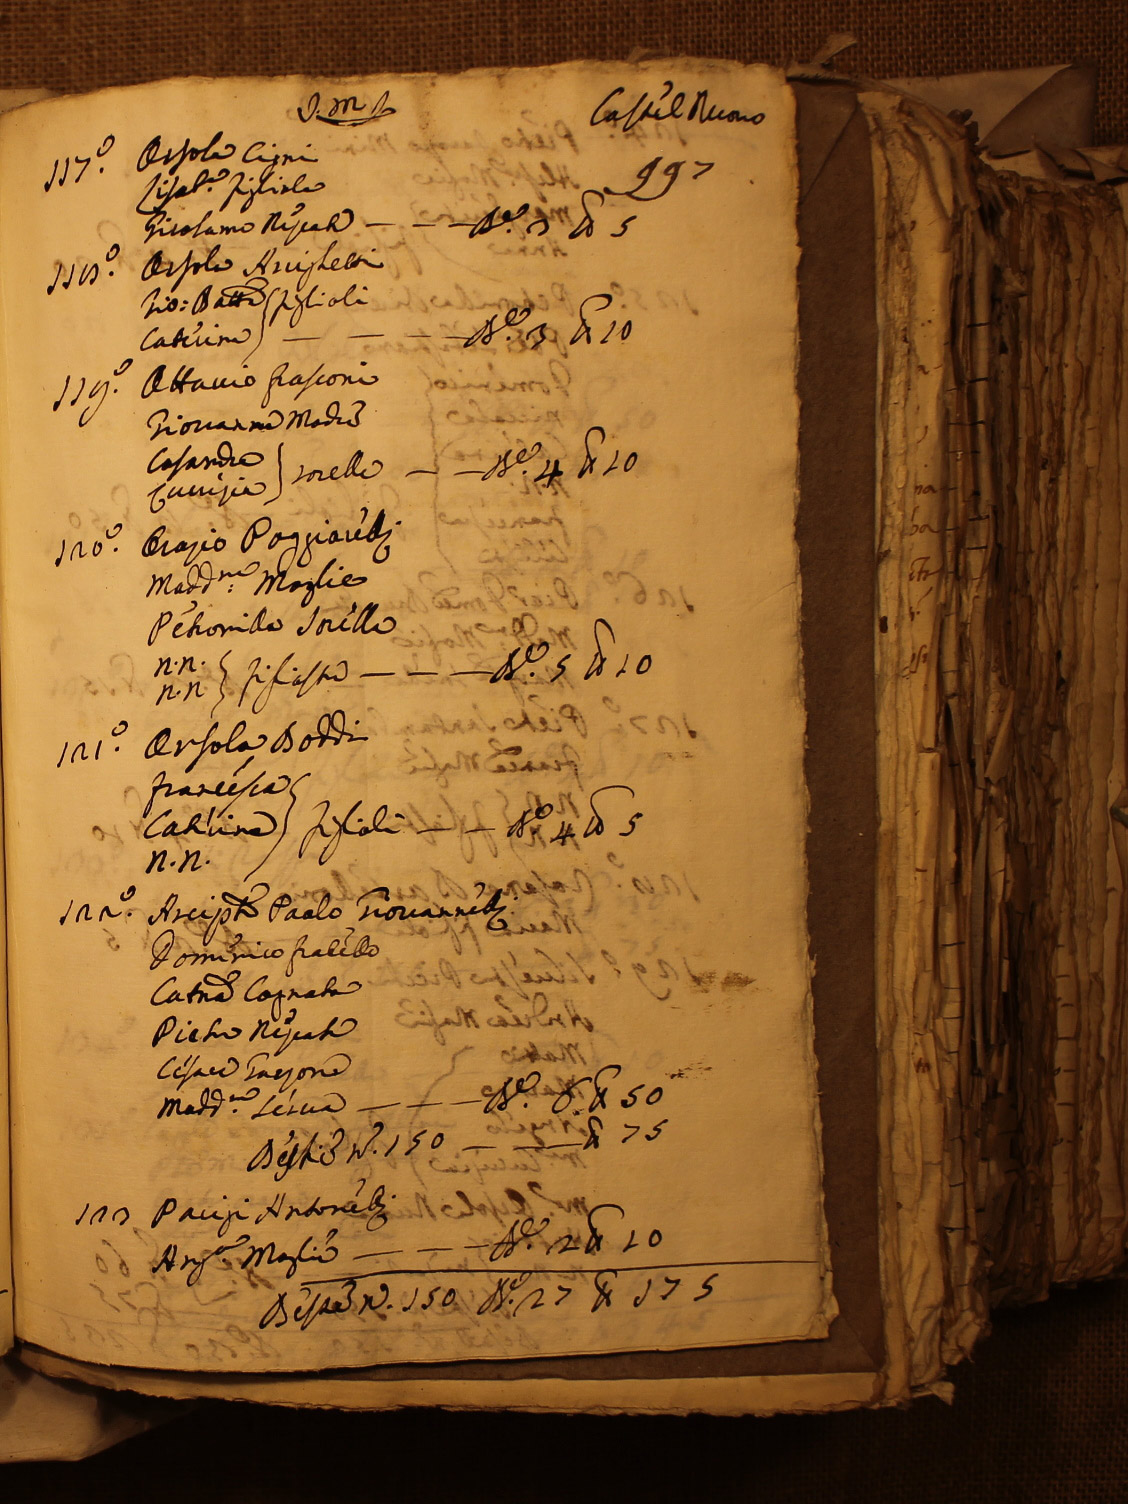 J.M.J. Castel Nuovo
997
117.° Orsola Cigni
Lisab.a figliola
Girolamo Nepote — — — N.° 3 ℔ 5
118.° Orsola Arighetti
Gio: Batta } figlioli
Caterina } — — — — N.° 3 ℔ 10
119.° Ottavio frasconi
Giovanna Madre
Casandra } sorelle — — N.° 4 ℔ 10
120.° Orazio Poggiarelli
Madd.na Moglie
Petronilla Sorella
n.n. } figliastre — — — N.° 5 ℔ 10
n.n }
121.° Orsola Boddi
francesca }
Caterina } figlioli — — N.° 4 ℔ 5
n.n. }
122.° Arcipte Paolo Giovannelli
Domenico fratello
Catna Cognata
Pietro Nepote
Cesare Garzone
Madd.na Serva — — — N.° 6 ℔ 50
Bestie n.° 150 — — ℔ 75
123 Parigi Antonelli
Ang.a Moglie — — — N.° 2 ℔ 10
Bestie n.° 150 N.° 27 ℔ 175